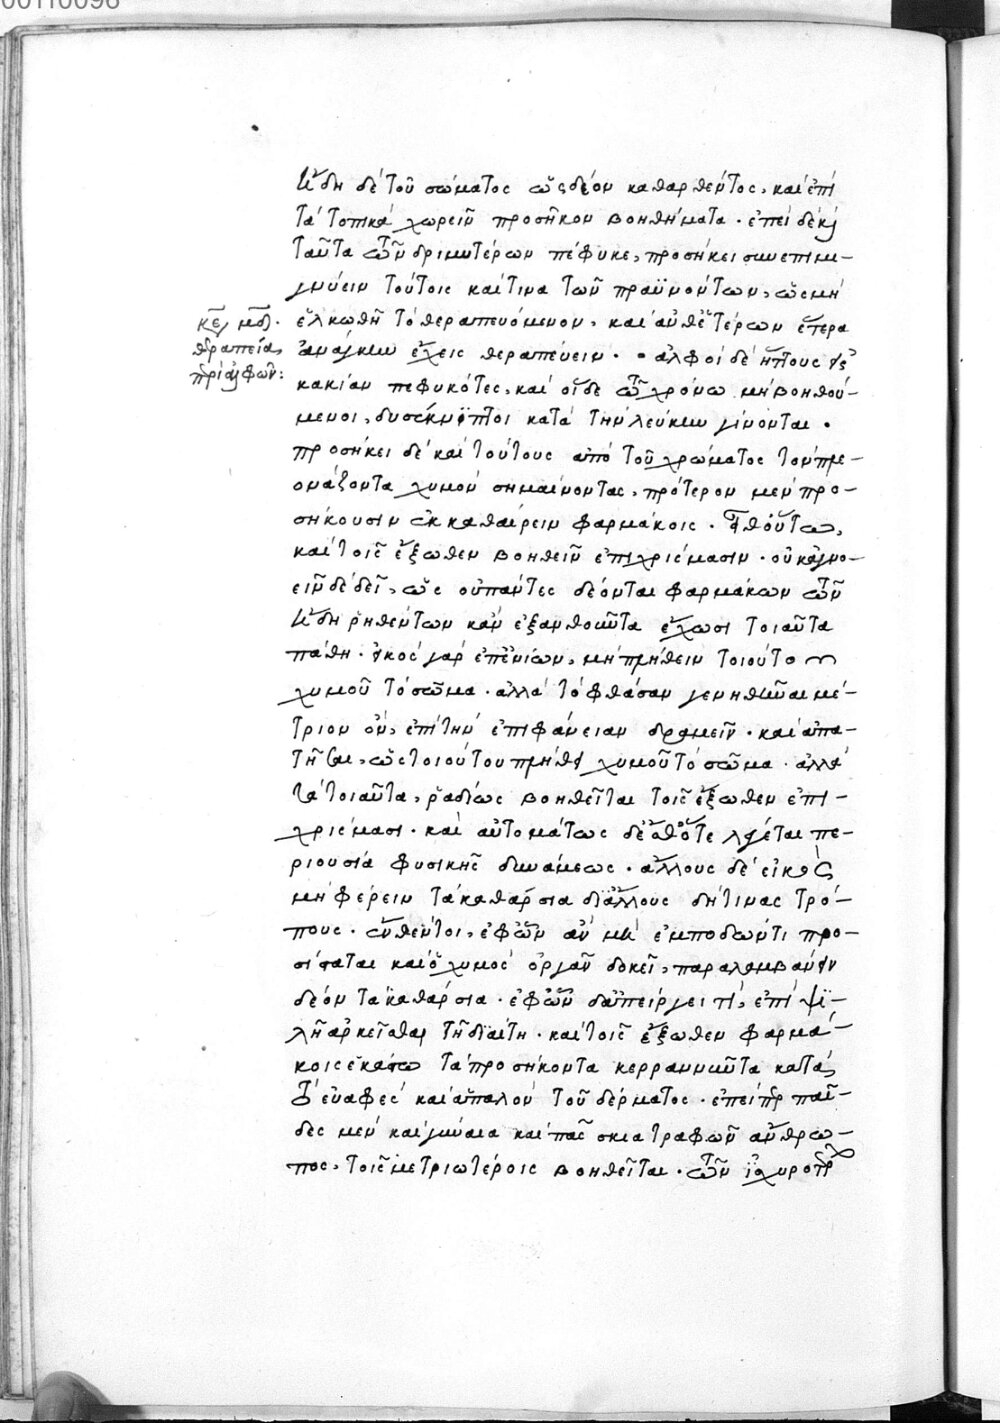 00110098
ἤδη δὲ τοῦ σώματος ὡς δέον καθαρθέντος, καὶ ἐπὶ
τὰ τοπικὰ χωρεῖν προσῆκον βοηθήματα. ἐπεὶ δὲ καὶ
ταῦτα τῶν δριμυτέρων πέφυκε, προσήκει συνεπιμι-
γνύειν τούτοις καί τινα τῶν πραϋνόντων, ὡς μὴ
ἑλκωθῆ τὸ θεραπευόμενον, καὶ ἀνθ' ἑτέρων ἕτερα
θεραπεία
περὶ ἀλφῶν:
ἀνάγκην ἔχεις θεραπεύειν. ἀλφοὶ δὲ ἥττους εἰς
κακίαν πεφυκότες, καὶ οἵδε τῶ χρόνω μὴ βοηθού-
μενοι, δυσέκνιπτοι κατὰ τὴν λεύκην γίνονται.
προσήκει δὲ καὶ τούτους ἀπὸ τοῦ χρώματος τὸν πλε-
ονάζοντα χυμὸν σημαίνοντας, πρότερον μὲν προ-
σήκουσιν ἐκκαθαίρειν φαρμάκοις. εἶθ' οὕτω,
καὶ τοῖς ἔξωθεν βοηθεῖν ἐπιχρίσμασιν. οὐκ ἀγνο-
εῖν δὲ δεῖ, ὡς οὐ πάντες δέονται φαρμάκων τῶν
ἤδη ῥηθέντων κἂν ἐξανθοῦντα ἔχωσι τοιαῦτα
πάθη. εἰκὸς γὰρ ἐπ' ἐνίων, μὴ πλήθειν τοιούτου
χυμοῦ τὸ σῶμα. ἀλλὰ τὸ φθάσαν γεννηθῆναι μέ-
τριον ὂν, ἐπὶ τὴν ἐπιφάνειαν δραμεῖν. καὶ ἀπα-
τῆσαι, ὡς τοιούτου πλήθει χυμοῦ τὸ σῶμα. ἀλλὰ
τὰ τοιαῦτα, ῥαδίως βοηθεῖται τοῖς ἔξωθεν ἐπι-
χρίσμασι. καὶ αὐτομάτως δὲ ἔσθ' ὅτε λύεται πε-
ριουσία φυσικῆς δυνάμεως. ἄλλους δὲ εἰκὸς
μὴ φέρειν τὰ καθάρσια δι' ἄλλους δή τινας τρό-
πους. ἐφ' ὧν ἂν μὴ ἐμποδών τι προ-
σίσταται καὶ ὁ χυμὸς ὀργᾶν δοκεῖ, παραλαμβάνειν
δέον τὰ καθάρσια. ἐφ' ὧν δ' ἀπείργει τὶ, ἐπὶ ψι-
λῆ ἀρκεῖσθαι τῆ διαίτη. καὶ τοῖς ἔξωθεν φαρμά-
κοις ἑκάστω τὰ προσήκοντα κεραννύντα κατὰ
τὸ εὐαφὲς καὶ ἁπαλὸν τοῦ δέρματος. ἐπείπερ παῖ-
δες μὲν καὶ γύναια καὶ πᾶς σκιατραφῶν ἄνθρω-
πος, τοῖς μετριωτέροις βοηθεῖται. τῶν ἰσχυροτέρων